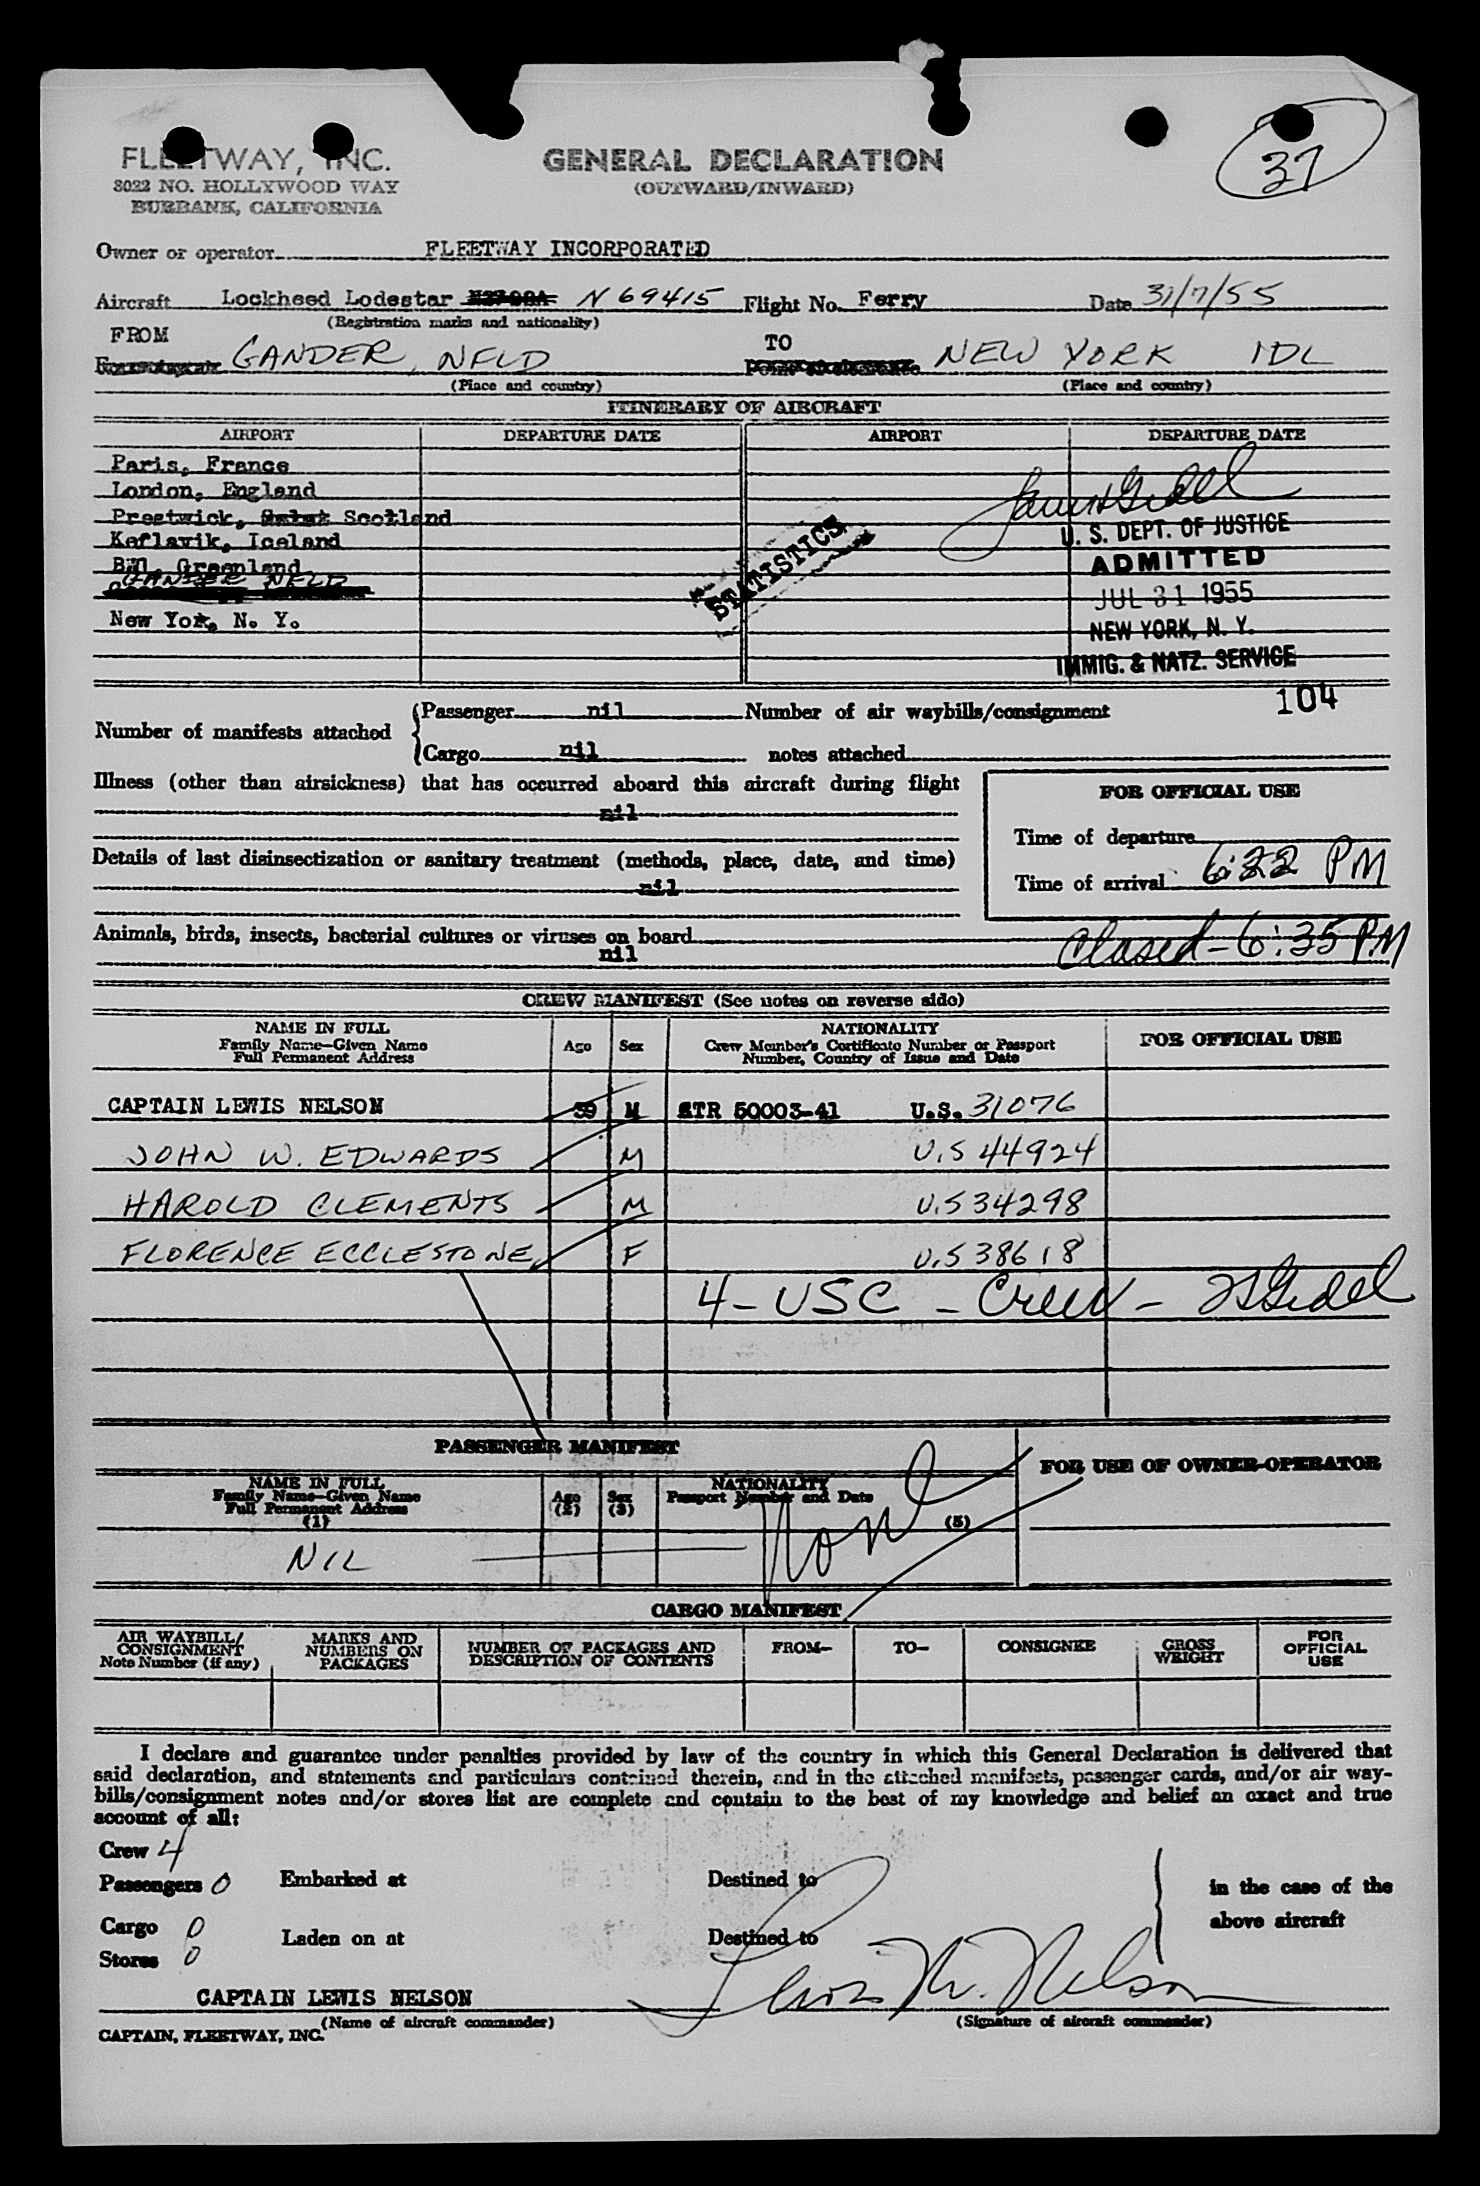 37
FLEETWAY, INC.
8022 NO. HOLLYWOOD WAY
BURBANK, CALIFORNIA
GENERAL DECLARATION
(OUTWARD/INWARD)
Owner or operator FLEETWAY INCORPORATED
Aircraft Lockheed Lodestar N 69415 Flight No. Ferry Date 31/7/55
(Registration marks and nationality)
FROM GANDER, NFLD TO NEW YORK IDL
(Place and country) (Place and country)
ITINERARY OF AIRCRAFT
AIRPORT DEPARTURE DATE AIRPORT DEPARTURE DATE
Paris, France
London, England
Prestwick, Scotland
Keflavik, Iceland
BW1, Greenland
GANDER NFLD
New York, N. Y.
STATISTICS
U. S. DEPT. OF JUSTICE
ADMITTED
JUL 31 1955
NEW YORK, N. Y.
IMMIG. & NATZ. SERVICE
104
Number of manifests attached
Passenger nil Number of air waybills/consignment
Cargo nil notes attached
Illness (other than airsickness) that has occurred aboard this aircraft during flight
nil
Details of last disinsectization or sanitary treatment (methods, place, date, and time)
nil
FOR OFFICIAL USE
Time of departure
Time of arrival 6:22 PM
Animals, birds, insects, bacterial cultures or viruses on board
nil
Closed - 6:35 PM
CREW MANIFEST (See notes on reverse side)
NAME IN FULL
Family Name—Given Name
Full Permanent Address
Age Sex
NATIONALITY
Crew Member's Certificate Number or Passport
Number, Country of Issue and Date
FOR OFFICIAL USE
CAPTAIN LEWIS NELSON 39 M ATR 50003-41 U.S. 31076
JOHN W. EDWARDS M U.S 44924
HAROLD CLEMENTS M U.S 34298
FLORENCE ECCLESTONE F U.S 38618
4 - USC - Crew -
PASSENGER MANIFEST
NAME IN FULL
Family Name—Given Name
Full Permanent Address
(1)
Age
(2)
Sex
(3)
NATIONALITY
Passport Number and Date
(5)
FOR USE OF OWNER-OPERATOR
NIL
None
CARGO MANIFEST
AIR WAYBILL/
CONSIGNMENT
Note Number (if any)
MARKS AND
NUMBERS ON
PACKAGES
NUMBER OF PACKAGES AND
DESCRIPTION OF CONTENTS
FROM— TO— CONSIGNEE
GROSS
WEIGHT
FOR
OFFICIAL
USE
I declare and guarantee under penalties provided by law of the country in which this General Declaration is delivered that
said declaration, and statements and particulars contained therein, and in the attached manifests, passenger cards, and/or air way-
bills/consignment notes and/or stores list are complete and contain to the best of my knowledge and belief an exact and true
account of all:
Crew 4
Passengers 0 Embarked at Destined to in the case of the
Cargo 0 Laden on at Destined to above aircraft
Stores 0
CAPTAIN LEWIS NELSON Lewis W. Nelson
(Name of aircraft commander) (Signature of aircraft commander)
CAPTAIN, FLEETWAY, INC.